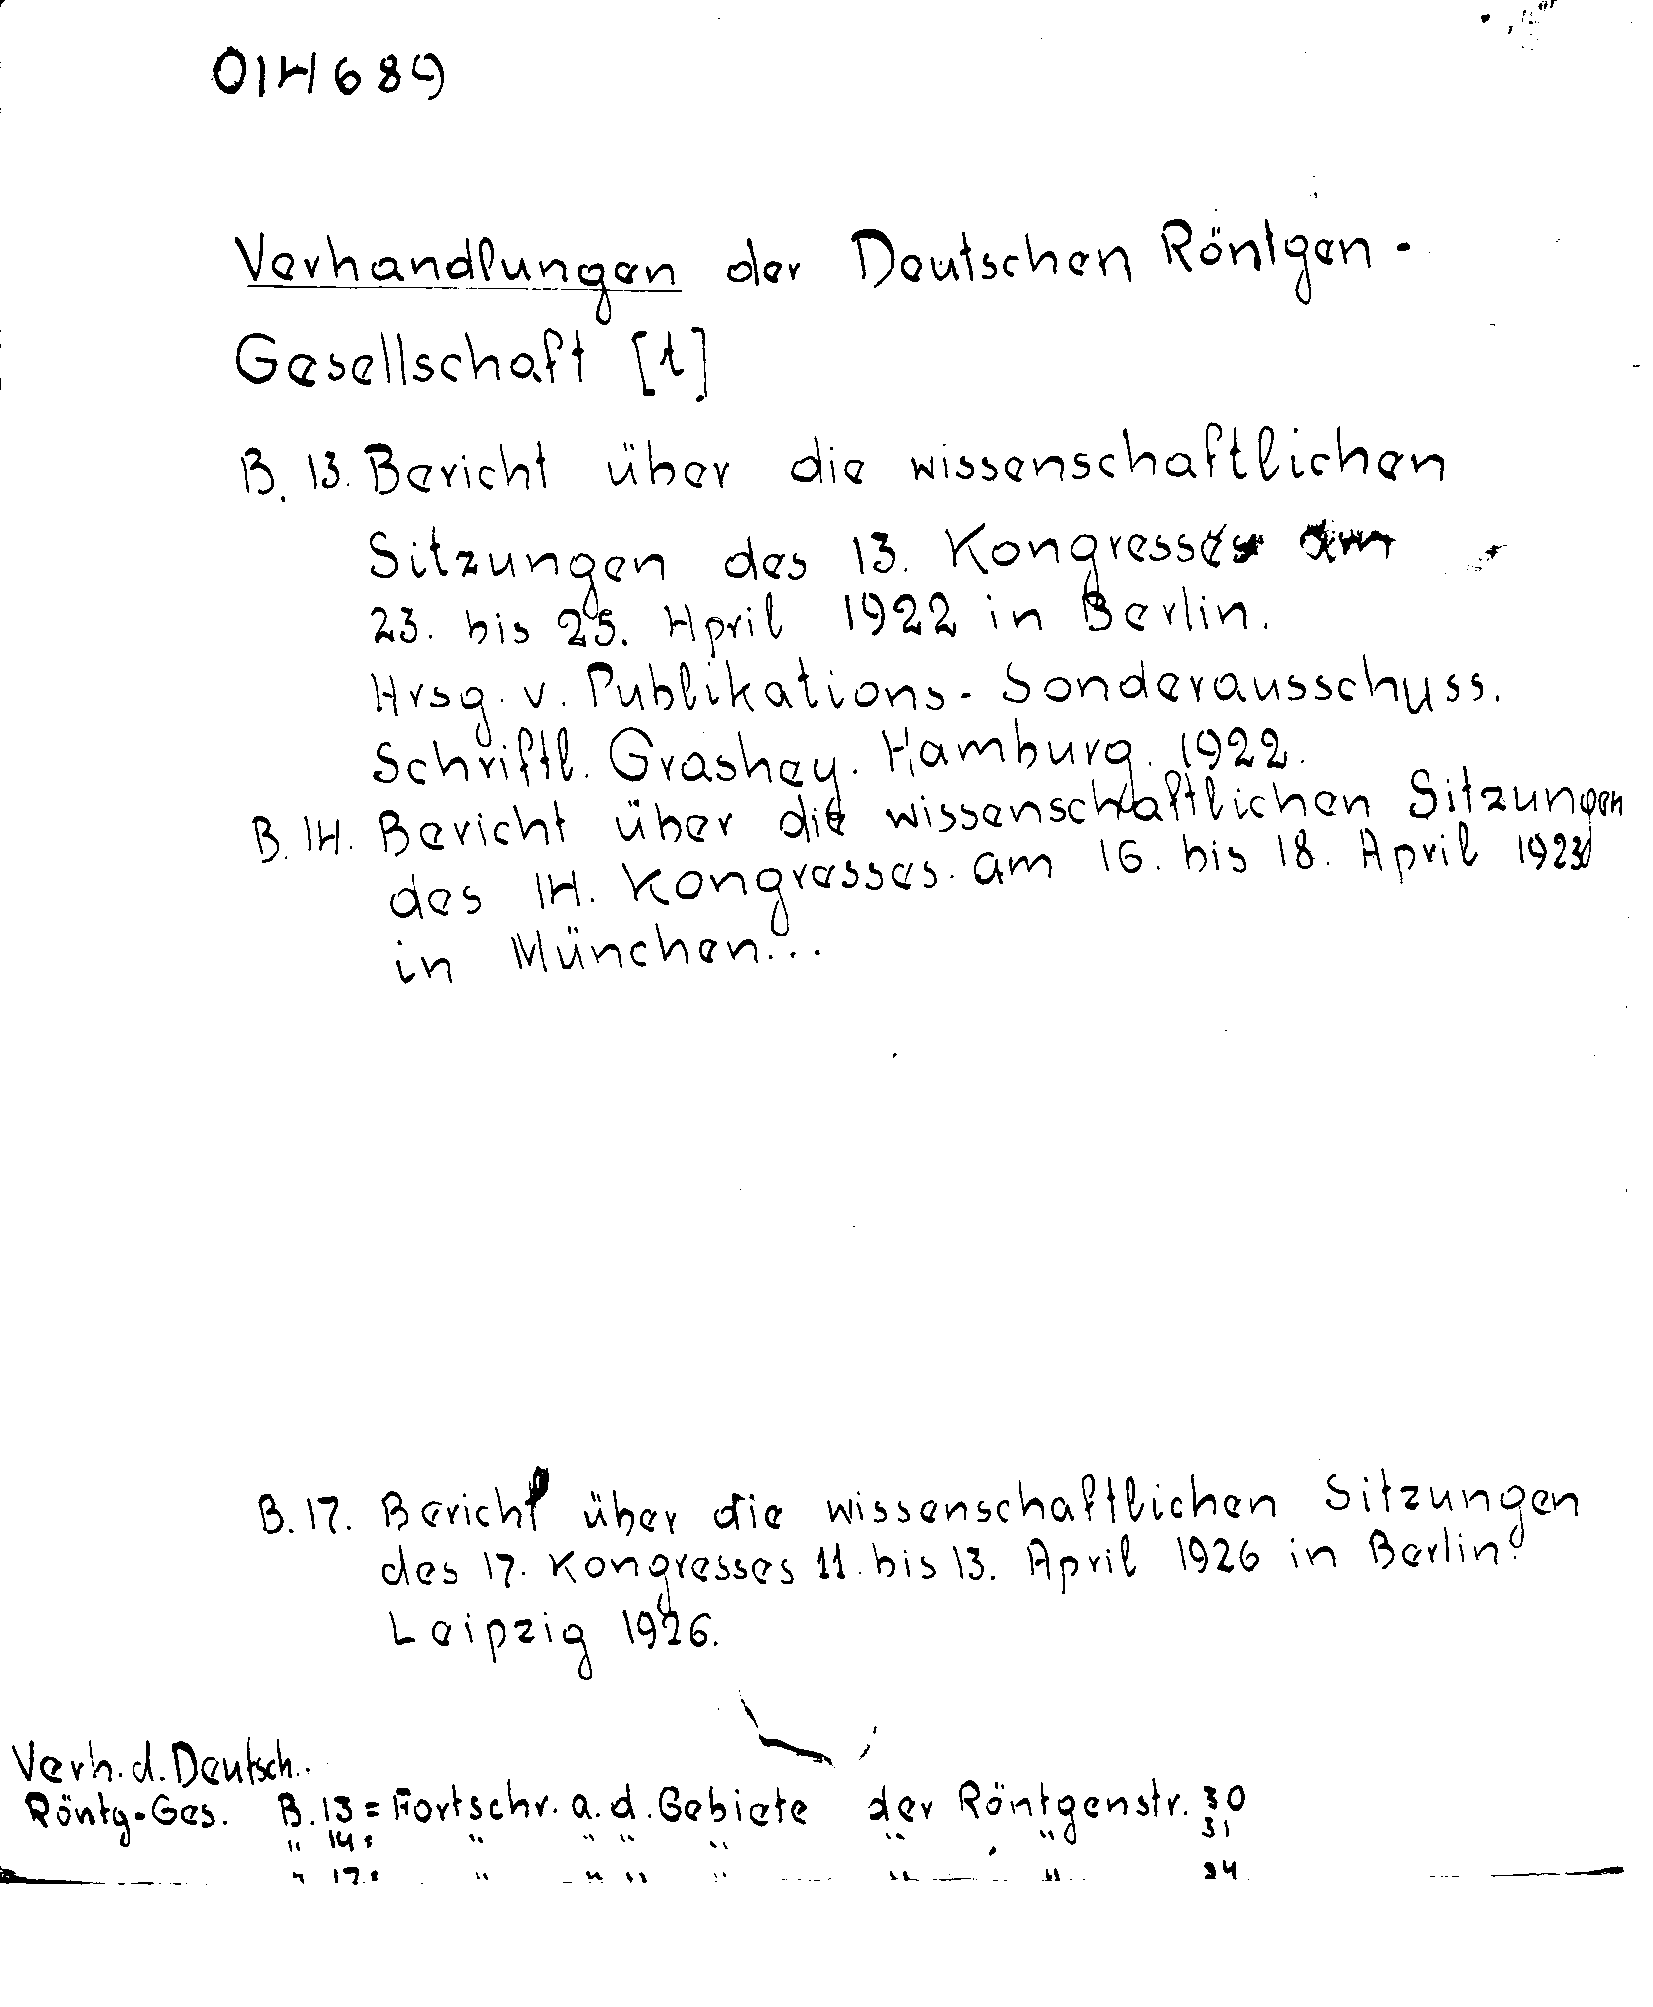 014689
Verhandlungen der Deutschen Röntgen-
Gesellschaft [1]
B. 13. Bericht über die wissenschaftlichen
Sitzungen des 13. Kongresses am
23. bis 25. April 1922 in Berlin.
Hrsg. v. Publikations-Sonderausschuss.
Schriftl. Grashey. Hamburg. 1922.
B. 14. Bericht über die wissenschaftlichen Sitzungen
des 14. Kongresses. am 16. bis 18. April 1923
in München...
B. 17. Bericht über die wissenschaftlichen Sitzungen
des 17. Kongresses 11. bis 13. April 1926 in Berlin.
Leipzig 1926.
Verh. d. Deutsch.
Röntg-Ges. B. 13 = Fortschr. a. d. Gebiete der Röntgenstr. 30
" 14: " " " " " " 31
" 17: " " " " " " 34